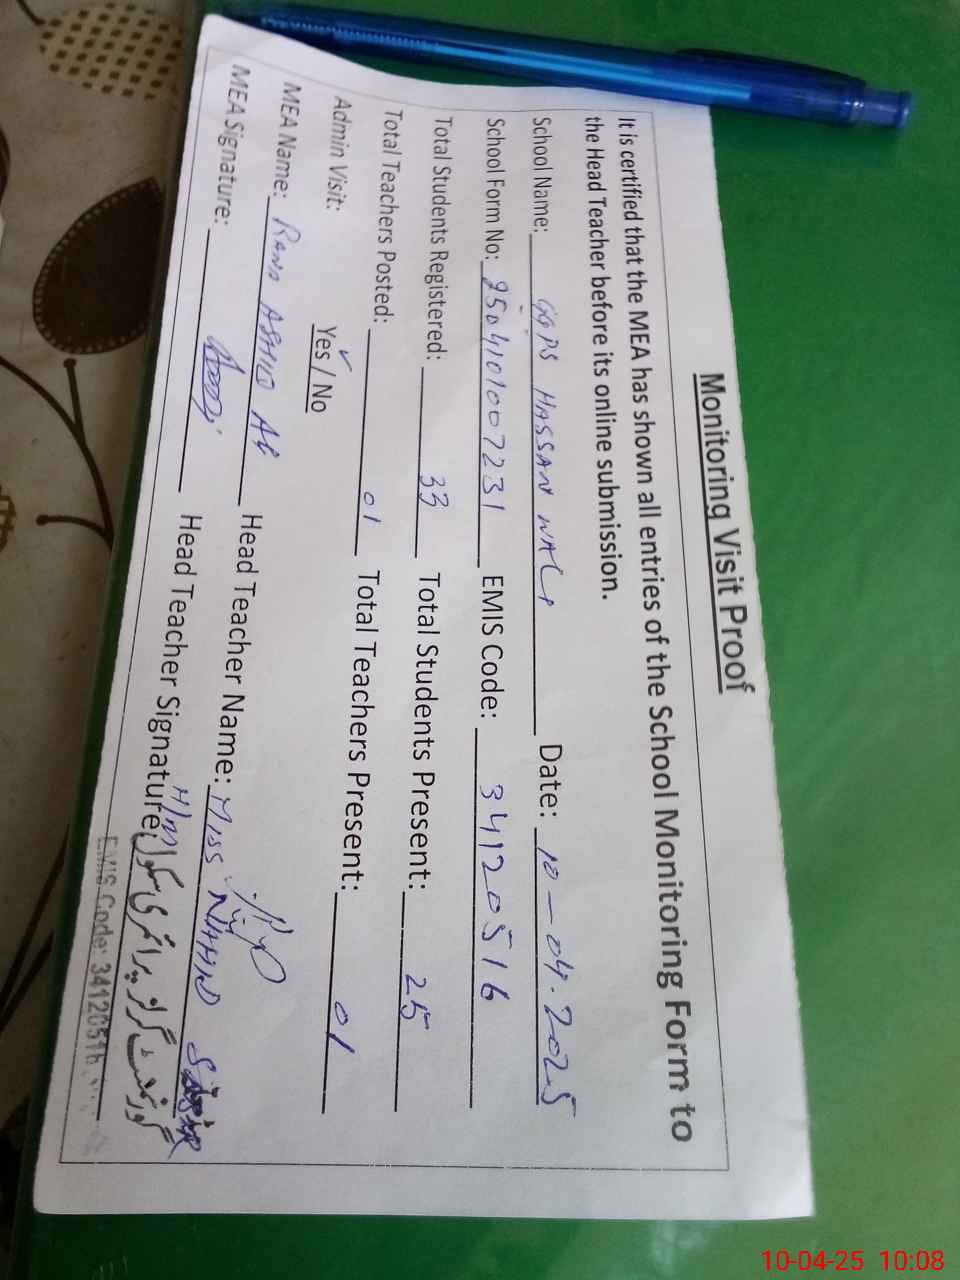 Monitoring Visit Proof
It is certified that the MEA has shown all entries of the School Monitoring Form to
the Head Teacher before its online submission.
School Name: GGPS HASSAN WALI Date: 10-04.2025
School Form No: 2504101007231 EMIS Code: 34120516
Total Students Registered: 33 Total Students Present: 25
Total Teachers Posted: 01 Total Teachers Present: 01
Admin Visit: Yes / No
MEA Name: RANA ABHID Ali Head Teacher Name: MISS NAHID
MEA Signature: Head Teacher Signature:
H/M گورنمنٹ گرلز پرائمری سکول
EMIS Code: 34120516
10-04-25 10:08